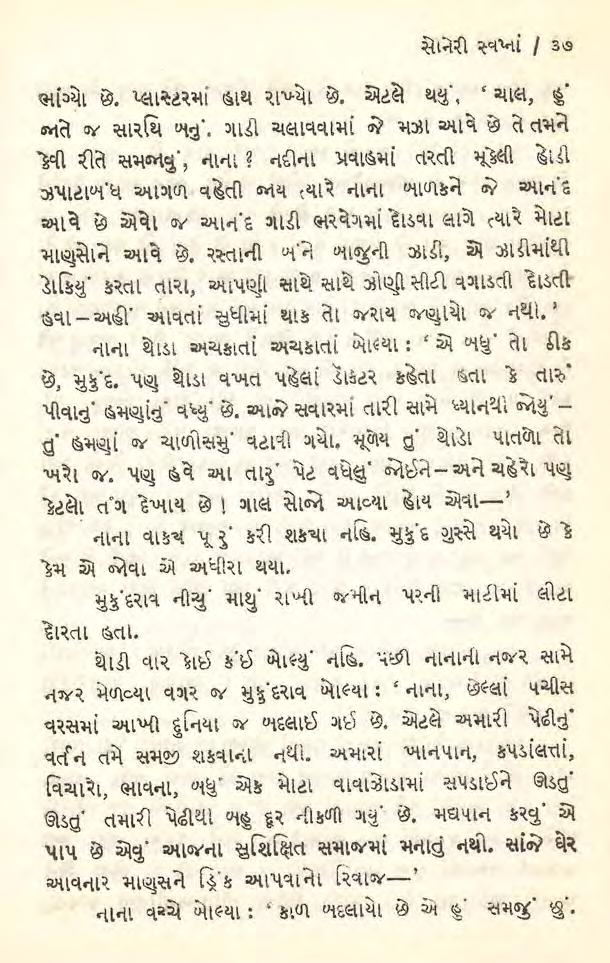 સોનેરી સ્વપ્નાં / ૩૭
ભાંગ્યો છે. પ્લાસ્ટરમાં હાથ રાખ્યો છે. એટલે થયું, ‘ ચાલ, હું
જાતે જ સારથિ બનું. ગાડી ચલાવવામાં જે મઝા આવે છે તે તમને
કેવી રીતે સમજાવું, નાના ? નદીના પ્રવાહમાં તરતી મૂકેલી હોડી
ઝપાટાબંધ આગળ વહેતી જાય ત્યારે નાના બાળકને જે આનંદ
આવે છે એવો જ આનંદ ગાડી ભરવેગમાં દોડવા લાગે ત્યારે મોટા
માણસોને આવે છે. રસ્તાની બંને બાજુની ઝાડી, એ ઝાડીમાંથી
ડોકિયું કરતા તારા, આપણી સાથે સાથે ઝીણી સીટી વગાડતી દોડતી
હવા – અહીં આવતાં સુધીમાં થાક તો જરાય જણાયો જ નથી. ’
નાના થોડા અચકાતાં અચકાતાં બોલ્યા : ‘ એ બધું તો ઠીક
છે, મુકુંદ. પણ થોડા વખત પહેલાં ડૉક્ટર કહેતા હતા કે તારું
પીવાનું હમણાંનું વધ્યું છે. આજે સવારમાં તારી સામે ધ્યાનથી જોયું –
તું હમણાં જ ચાળીસમું વટાવી ગયો. મૂળેય તું થોડો પાતળો તો
ખરો જ. પણ હવે આ તારું પેટ વધેલું જોઈને – અને ચહેરો પણ
કેટલો તંગ દેખાય છે ! ગાલ સોજો આવ્યા હોય એવા—’
નાના વાક્ય પૂરું કરી શક્યા નહિ. મુકુંદ ગુસ્સે થયો છે કે
કેમ એ જોવા એ અધીરા થયા.
મુકુંદરાવ નીચું માથું રાખી જમીન પરની માટીમાં લીટા
દોરતા હતા.
થોડી વાર કોઈ કંઈ બોલ્યું નહિ. પછી નાનાની નજર સામે
નજર મેળવ્યા વગર જ મુકુંદરાવ બોલ્યા : ‘ નાના, છેલ્લાં પચીસ
વરસમાં આખી દુનિયા જ બદલાઈ ગઈ છે. એટલે અમારી પેઢીનું
વર્તન તમે સમજી શકવાના નથી. અમારાં ખાનપાન, કપડાંલત્તાં,
વિચારો, ભાવના, બધું એક મોટા વાવાઝોડામાં સપડાઈને ઊડતું
ઊડતું તમારી પેઢીથી બહુ દૂર નીકળી ગયું છે. મદ્યપાન કરવું એ
પાપ છે એવું આજના સુશિક્ષિત સમાજમાં મનાતું નથી. સાંજે ઘેર
આવનાર માણસને ડ્રિંક આપવાનો રિવાજ—’
નાના વચ્ચે બોલ્યા : ‘ કાળ બદલાયો છે એ હું સમજું છું.